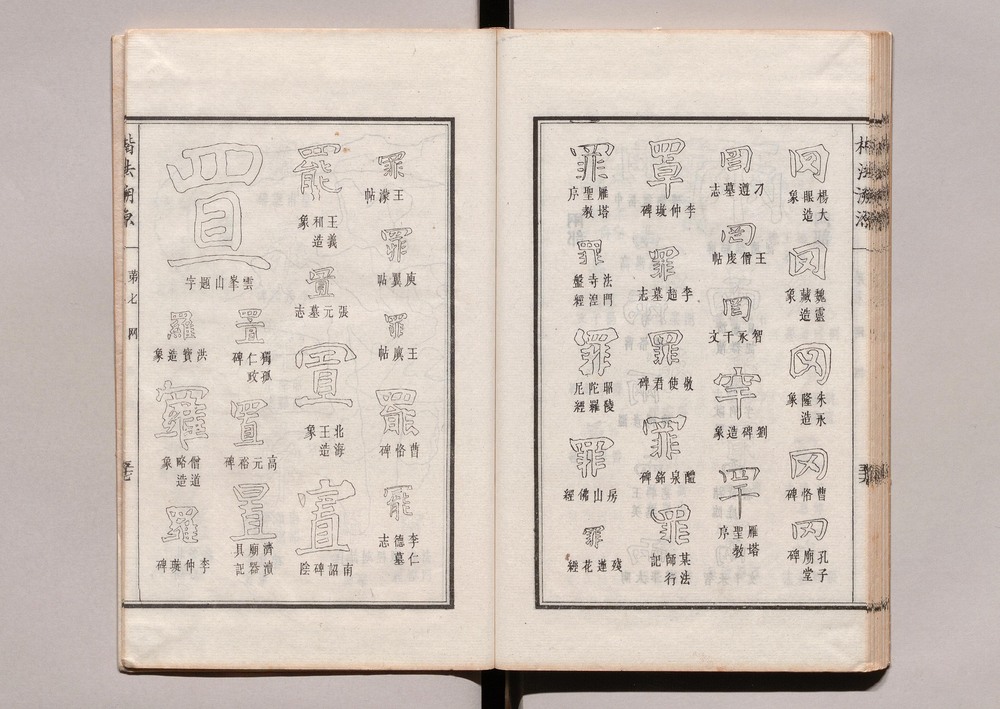 冈
楊大眼造象
冈
魏靈藏造象
冈
朱永隆造象
冈
曹恪碑
冈
孔子廟堂碑
罔
刁遵墓志
罔
王僧虔帖
罔
智永千文
罕
劉碑造象
罕
雁塔聖教序
罩
李仲璇碑
罪
李超墓志
罪
敬使君碑
罪
醴泉銘碑
罪
某法師行記
罪
雁塔聖教序
罪
法門寺湼槃經
罪
昭陵陀羅尼經
罪
房山佛經
罪
殘蓮花經
罪
王濛帖
罪
庾翼帖
罪
王廙帖
罷
曹恪碑
罷
李仁德墓志
罷
王義和造象
置
張元墓志
置
北海王造象
置
南詔碑陰
置
雲峯山題字
置
獨孤仁政碑
置
高元裕碑
置
濟瀆廟器具記
羅
洪寶造象
羅
僧道略造象
羅
李仲璇碑
楷法溯原
第七 网